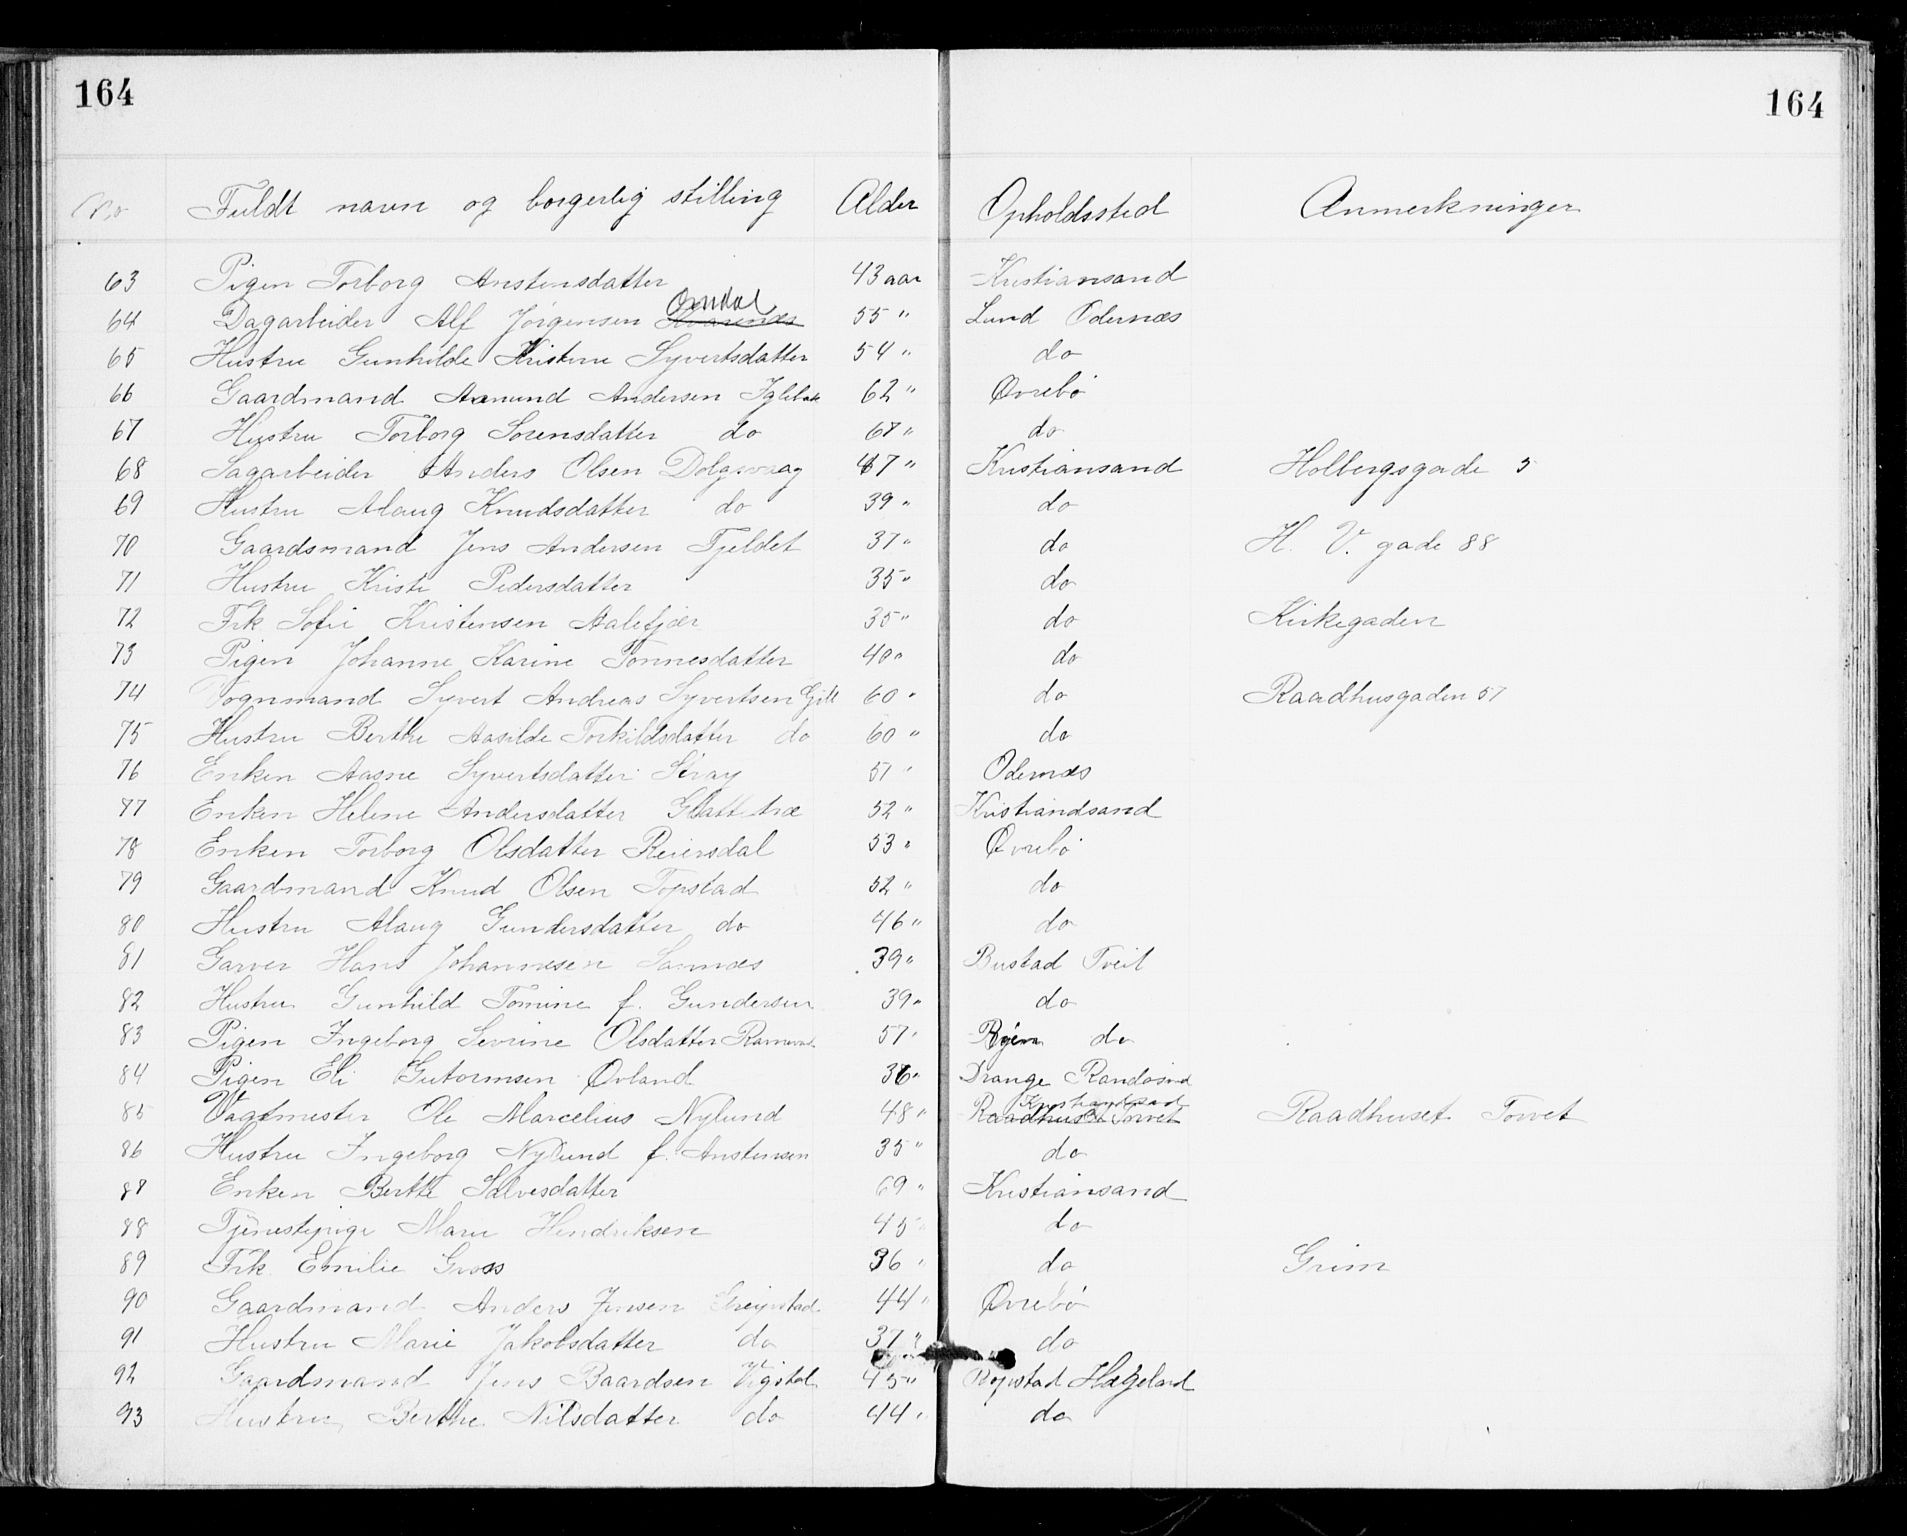 164 164
No Fuldt navn og borgerlig stilling Alder Opholdssted Anmerkninger
63 Pigen Torborg Anstensdatter 43 aar Kristiansand
64 Dagarbeider Alf Jørgensen Omdal 55 " Lund Odernæs
65 Hustru Gunhilde Kristine Syvertsdatter 54 " do
66 Gaardmand Aanund Andersen Iglebæk 62 " Øvrebø
67 Hustru Torborg Sørensdatter do 67 " do
68 Sagarbeider Anders Olsen 47 " Kristiansand Holbergsgade 5
69 Hustru Alaug Knudsdatter do 39 " do
70 Gaardsmand Jens Andersen Fjeldet 37 " do H. V. gade 88
71 Hustru Kristi Pedersdatter 35 " do
72 Frk Sofie Kristensen Aalefjær 35 " do Kirkegaden
73 Pigen Johanne Karine Tønnesdatter 40 " do
74 Vognmand Syvert Andreas Syvertsen 60 " do Raadhusgaden 57
75 Hustru Berthe Aasilde Torkildsdatter do 60 " do
76 Enken Aasne Syvertsdatter Stray 51 " Odernæs
77 Enken Helene Andersdatter Glattetræ 52 " Kristiandsand
78 Enken Torborg Olsdatter Reiersdal 53 " Øvrebø
79 Gaardmand Knud Olsen Topstad 52 " do
80 Hustru Alaug Gundersdatter do 46 " do
81 Garver Hans Johannesen Sannæs 39 " Bustad Tveit
82 Hustru Gunhild Tomine f. Gundersen 39 " do
83 Pigen Ingeborg Severine Olsdatter 57 " Ryen do
84 Pigen Eli Gutormsen Øvland 36 " Drange Randøsund
85 Vagtmester Ole Marcelius Nylund 48 " Raadhuset Torvet Kristiandsand Raadhuset Torvet
86 Hustru Ingeborg Nylund f. Anstensen 35 " do
87 Enken Berthe Salvesdatter 69 " Kristiansand
88 Tjenestepige Marie Hendriksen 45 " do
89 Frk. Emilie Gross 36 " do Grim
90 Gaardmand Anders Jensen Greipstad 44 " Øvrebø
91 Hustru Marie Jakobsdatter do 37 " do
92 Gaardsmand Jens Baardsen 45 " Hægeland
93 Hustru Berthe Nilsdatter do 44 " do